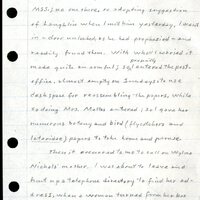 MSS, in a mashore, or adopting suggestion
of Longhlin when I met him yesterday, I went
in - door unlocked as he had prophesied - and
readily found them. With what I carried it
made quite an armful; so I entered the post-
office, almost empty on Sundays to use
desk space for reassembling the papers, while
so doing Mrs. Mattes entered; so I gave her
numerous botany and bird (flycatchers and
icteridae) papers to take home and peruse.
Then it occurred to me to call on Wylma
Nichols' mother. I was about to leave and
hunt up a telephone directory to find her ad-
dress, when a woman turned from her box